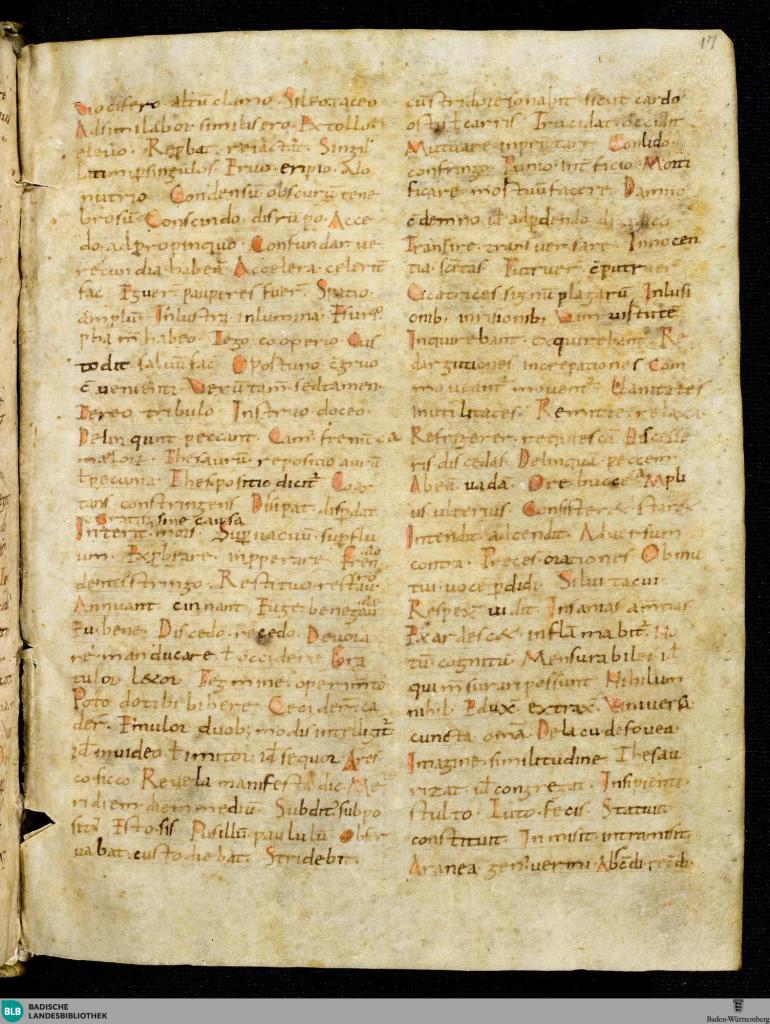 17
Vociferor altū clamo. Sileo. taceo
Adsimilabor similis ero. Extollo.
elevo. Reprobat. reiactat. Singil
latim. p singulos. Eruo. eripio. Alo
nutrio. Condensū obscurū tene
brosū. Conscindo. disrūpo. Acce
do. adpropinquo. Confundar. ve
recundia habeā. Accelera. celerit
fac. Eguer pauperes fuer. Spatio.
āmplū. Inlustra. inlumina.
habeo. Tego. cooperio. Cus
todit. salvū fac. Oportuno. cgruo
c venienti. Verū tam. sedtamen.
Tereo. tribulo. Instruo. doceo.
Delinqunt. peccant. Cam. frenū. ca
Thesaurū. repositio. aurū
ł pecunia. Thesppositio dicit. Coar
tans. constringens. Dissipat. dispdat
Gratis. sine causa.
Interit. moris. Supvacuū. supflu
um. Explorare. inpperare. Fren
dentes stringo. Restituo. restau
Annuant. cinnant. Euge. bene gau
Eu bene. Discedo. recedo. Devora
re. manducare ł occidere. Gra
tulor. letor. Tegmine. operimto
Poto. do tibi bibere. Cecider. ca
der. Emulor. duob; modis intellegit
id invideo. ł imitor. id sequor. Ares
co. sicco. Revela. manifesta. dic. Me
ridiem. diem mediū. Subdit. subpo
sit. Esto. sis. Pusillū. paululū. Obser
vabat. custodiebat. Stridebit.
cū stridore sonabit. sicut cardo
ostii ł carris. Trucidat. occidit
Mutuare. inpritare. Conlido.
confringo. Punio. int ficio. Morti
ficare. mortuū facere. Damno
c demno. id adpdendo
Transire. transversare. Innocen
tia. sc̄itas. Putruer. cputruer
Cicatrices. signū plagarū. Inlusi
onib. inrisionib.
Inquirebant. exquirebant. Re
dargutiones. increpationes. Com
moveant. movent. Vanitates
inutilitates. Remitte. relaxa
Refrigerer. requiescā. Discesse
ris. discedas. Delinquā. peccem
Abeā. vadā. Ore. bucce. Ampli
us. ulterius. Consistere. stare
Intendit. adtendit. Adversum
contra. Preces. orationes. Obmu
tui. voce pdidi. Silui. tacui
Respex. vidit. Insanias. amtias
Exardescet. inflāmabit. No
tū. cognitū. Mensurabiles. id
qui mensurari possunt. Nihilum
nihil. Eduxit. extraxit. Universa
cuncta. omā. De lacu. de fovea
Imagine. similitudine. Thesau
rizat. id congregat. Insipienti.
stulto. Luto. fecis. Statuit
constituit. Inmisit. intromisit
Aranea. gen' vermi.
BLB BADISCHE
LANDESBIBLIOTHEK
Baden-Württemberg